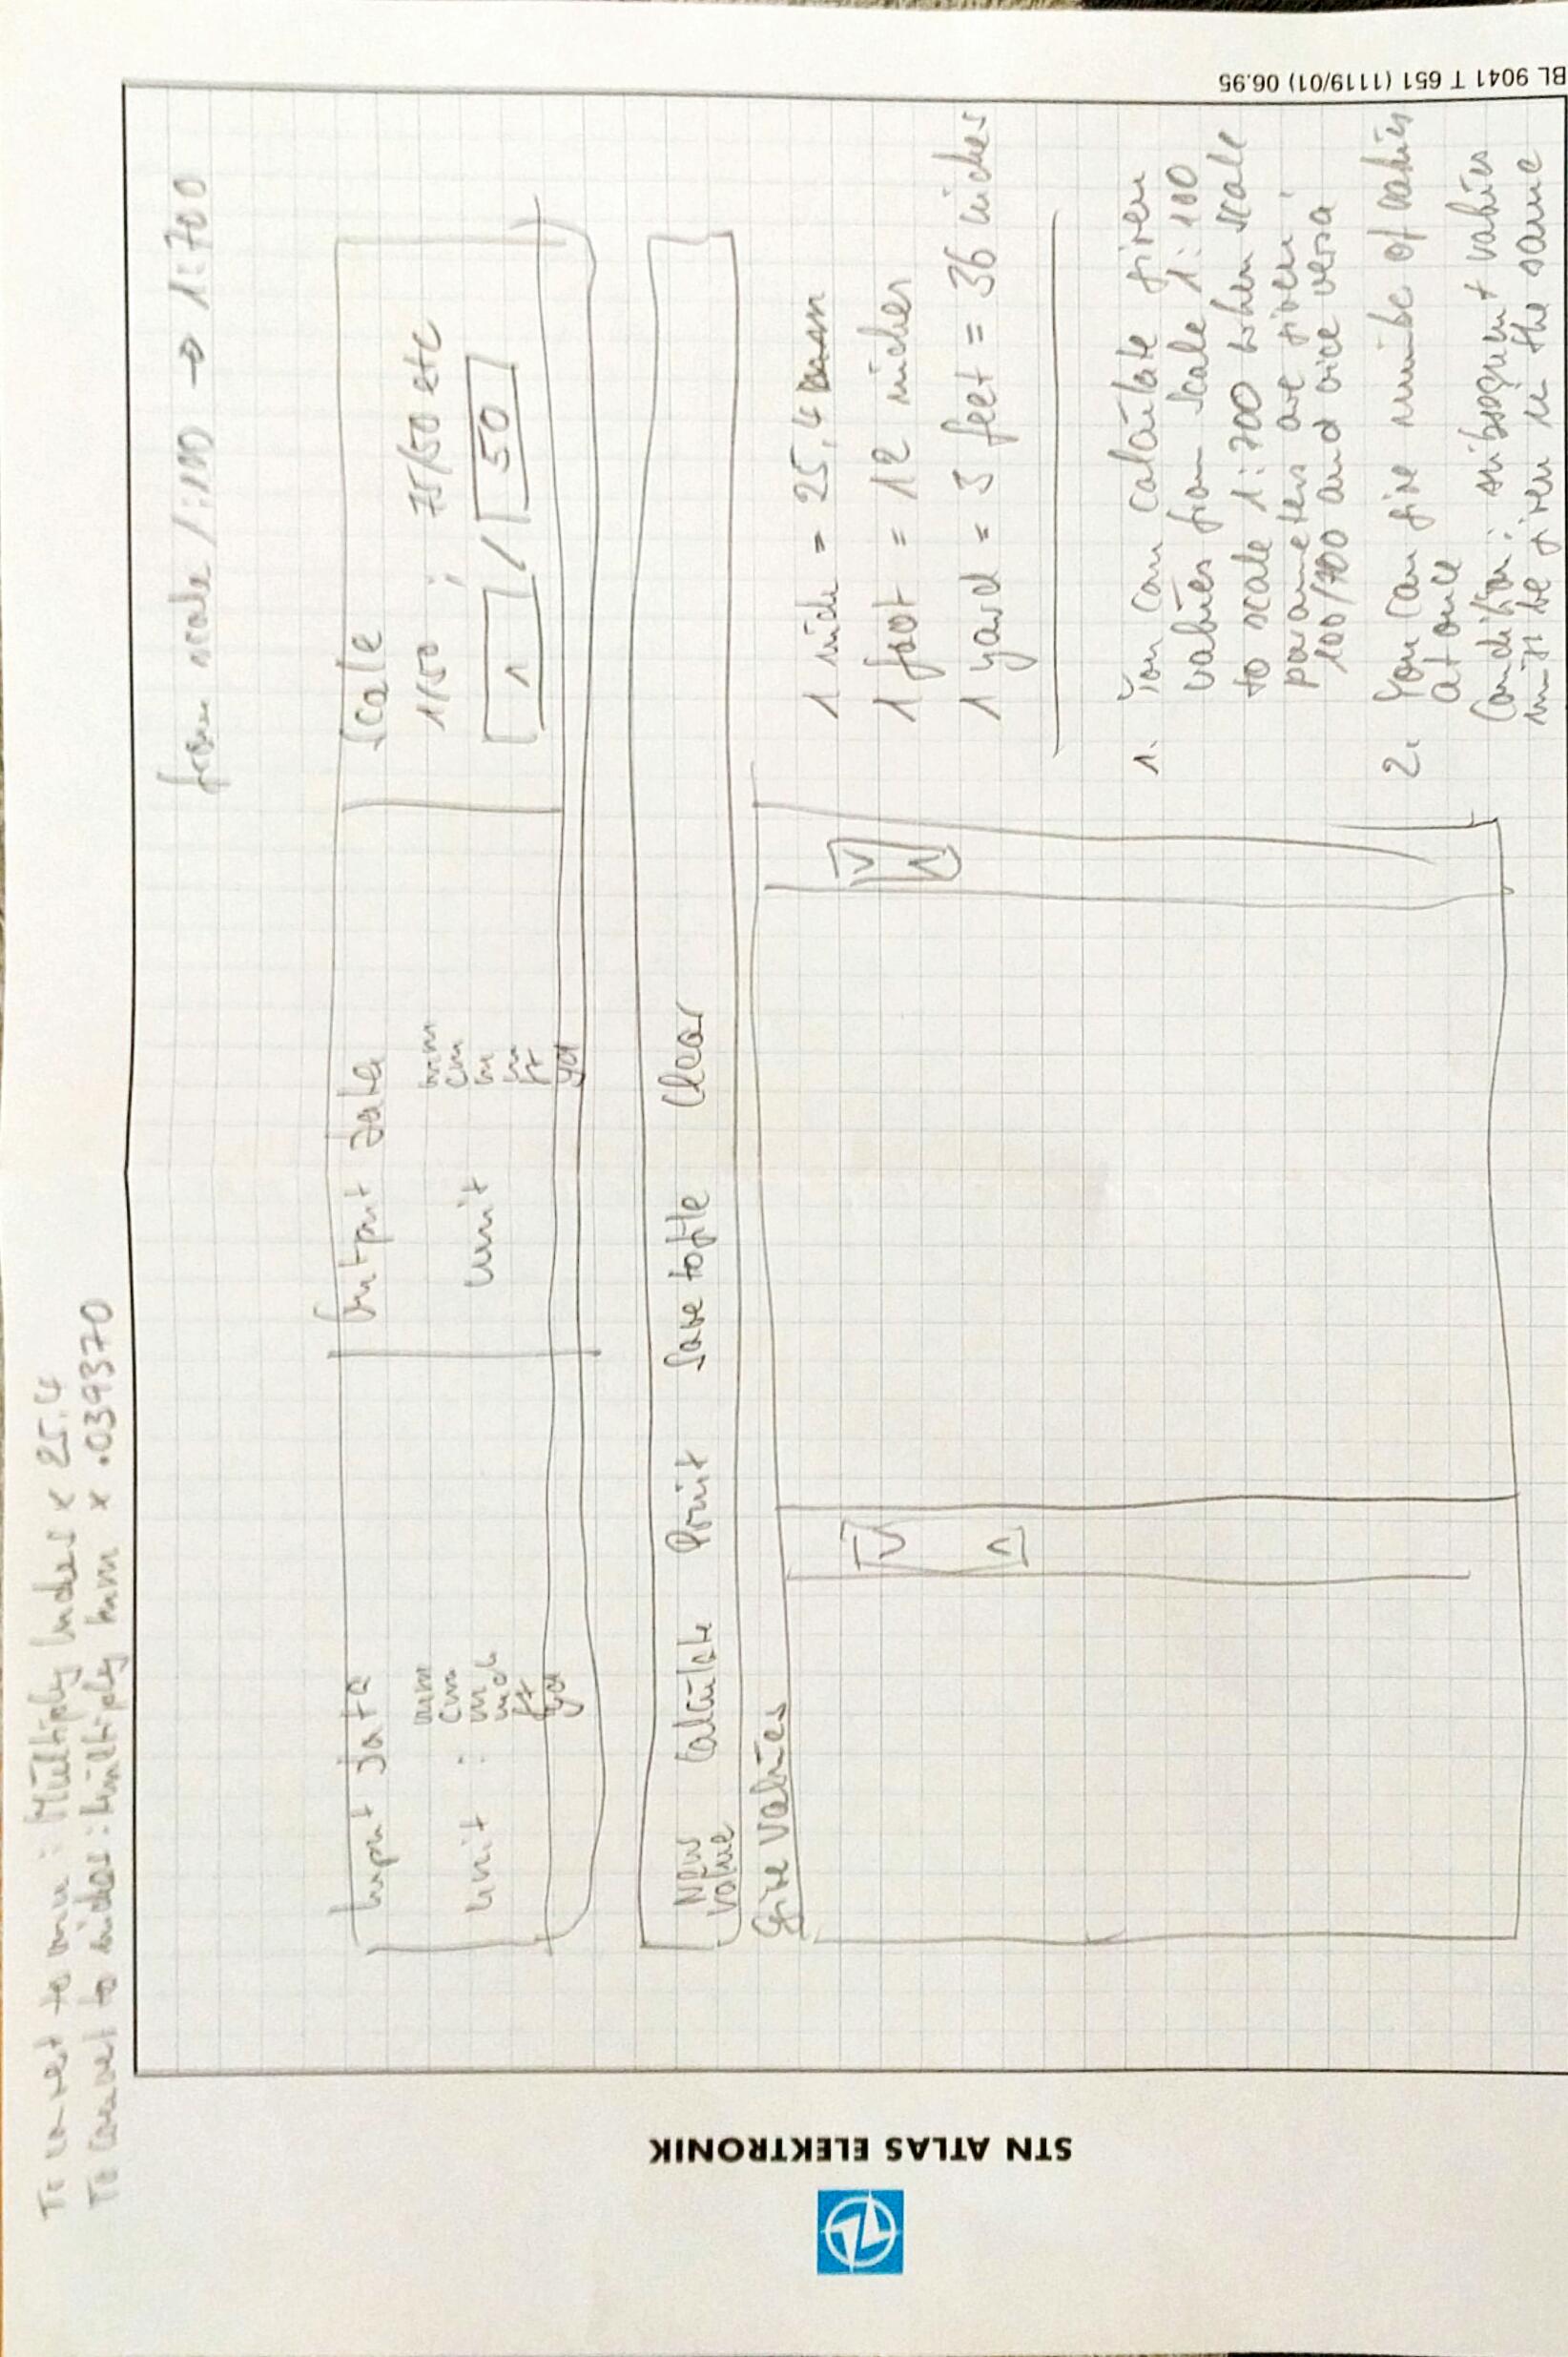 To convert to mm : Multiply inches x 25.4
To convert to inches : Multiply mm x .039370
from scale 1:100 → 1:700
Input data
unit :
mm
cm
m
inch
ft
yd
Output data
unit
mm
cm
m
in
ft
yd
Scale
1/50 ; 75/50 etc
1 / 50
New value Calculate Print Save to file Clear
Give values
V
Λ
V
Λ
1 inch = 25,4 mm
1 foot = 12 inches
1 yard = 3 feet = 36 inches
1. You can calculate given
values from scale 1:100
to scale 1:700 when scale
parameters are given:
100/700 and vice versa
2. You can give numbe of values
at once
Condition: subsequent values
must be given in the same
STN ATLAS ELEKTRONIK
BL 9041 T 651 (1119/01) 06.95